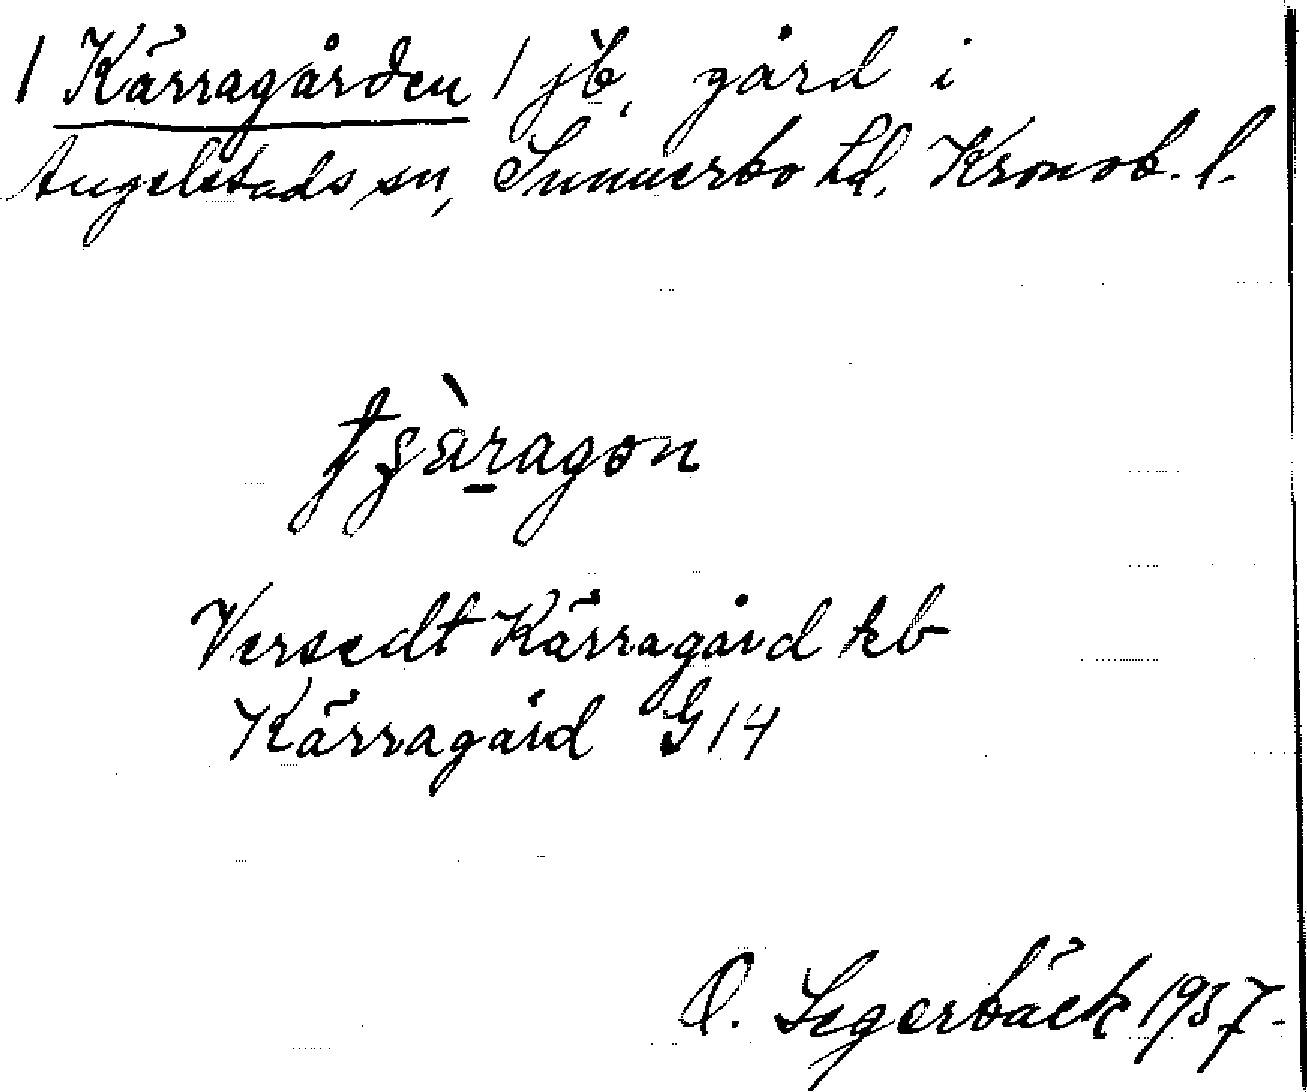 / Kärragården / jb, gård i
Angelstads sn, Sunnerbo hd, Kronob. l.
Versedt Kärragård kb
Kärragård G 14
O. Segerbäck 1957.